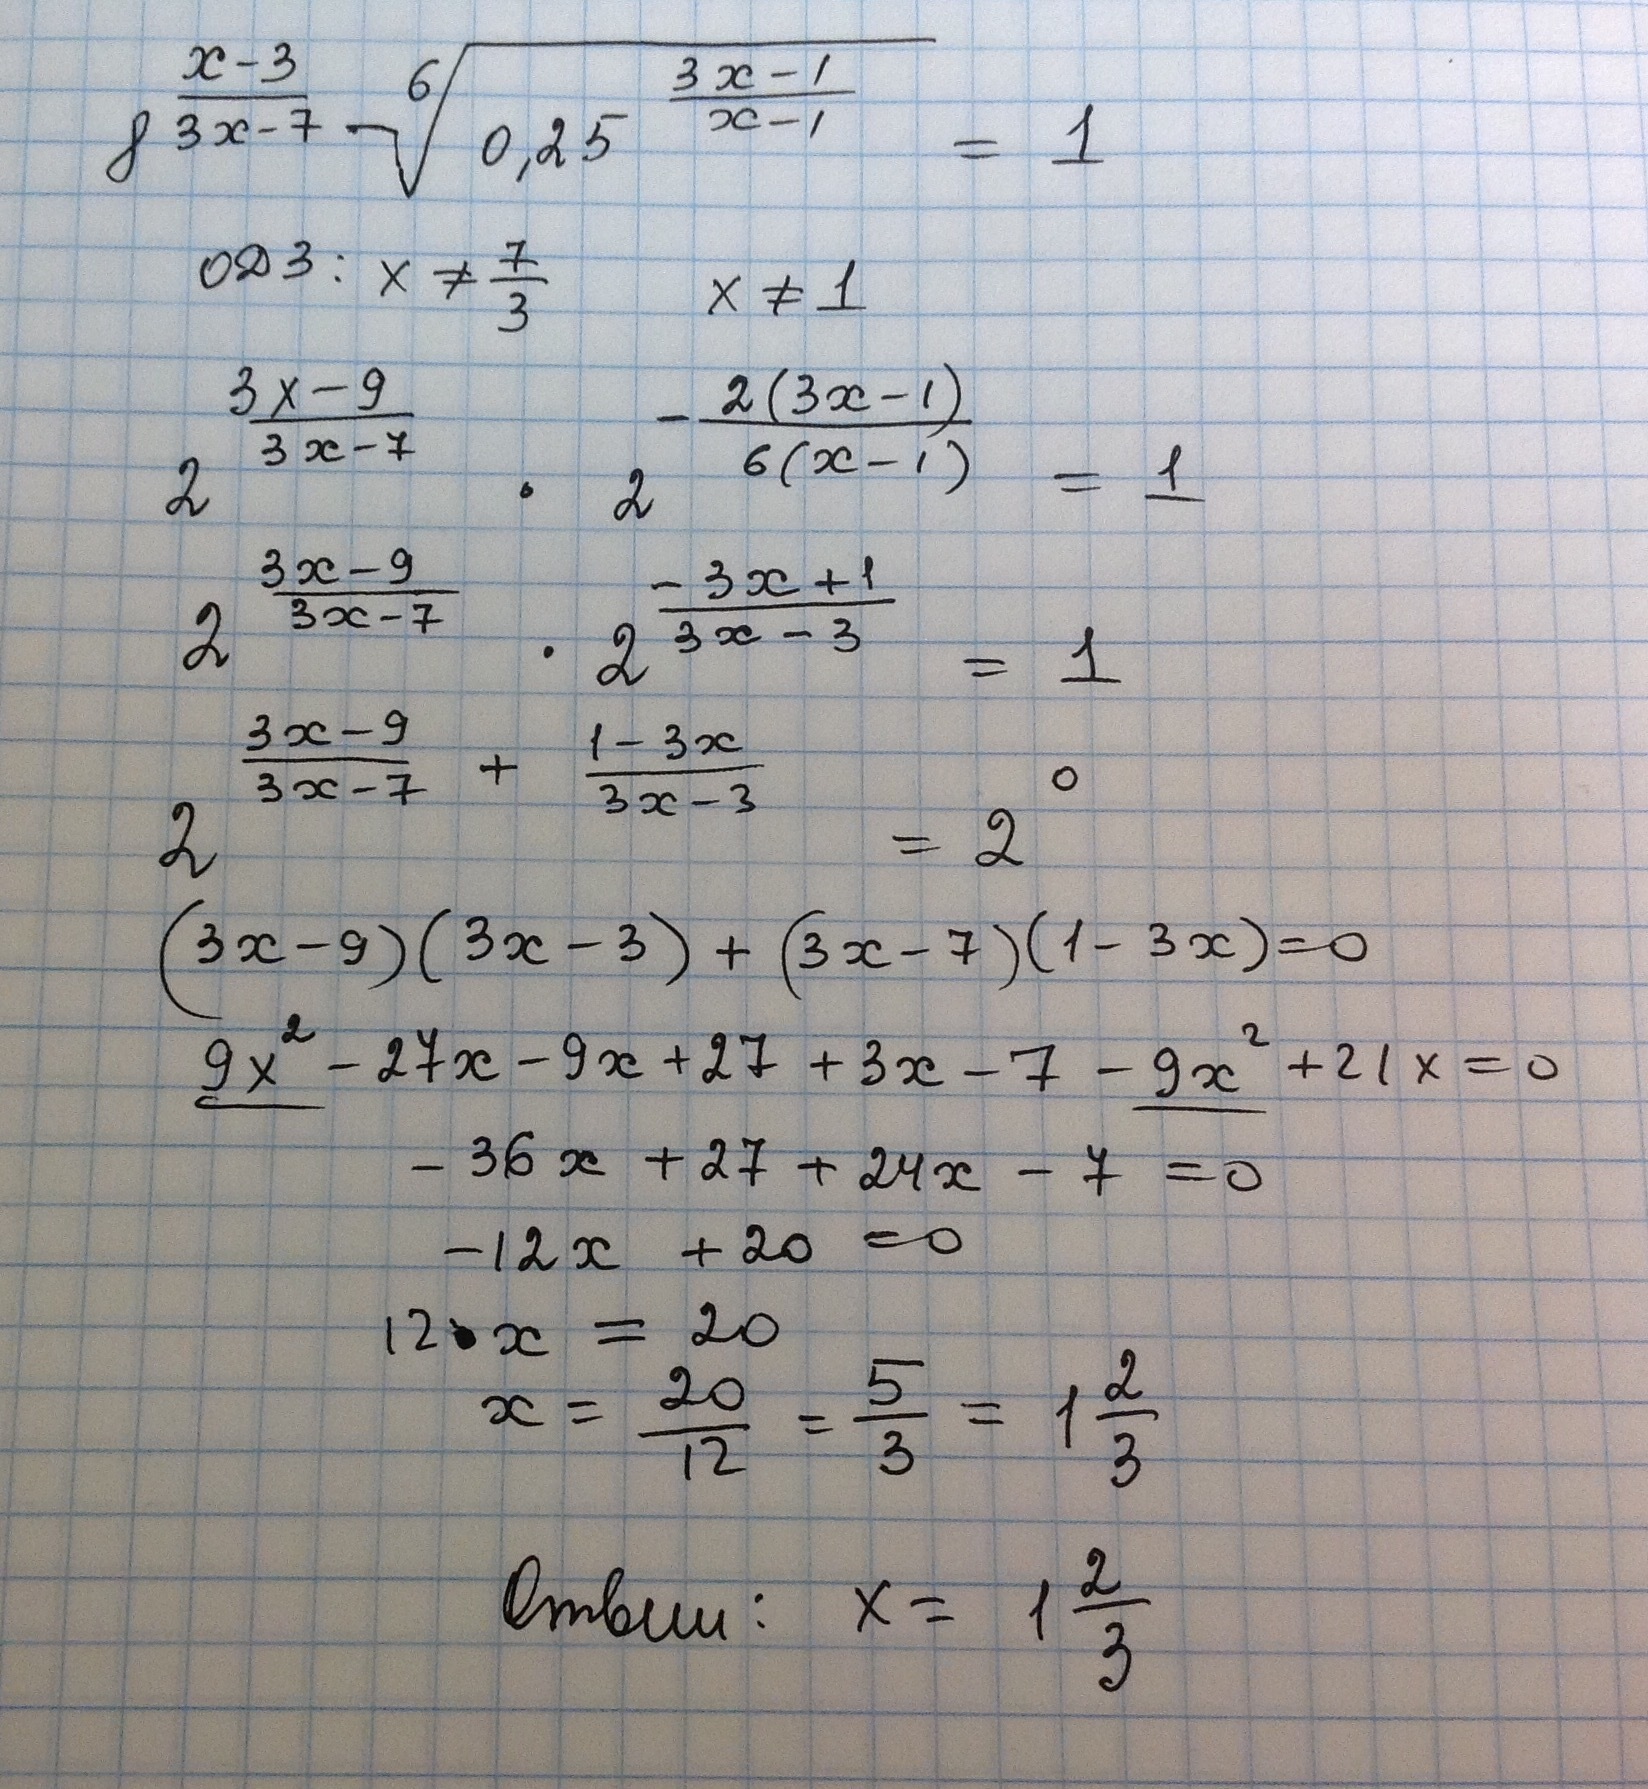 8^((x-3)/(3x-7)) · ⁶√(0,25^((3x-1)/(x-1))) = 1
ОДЗ: x ≠ 7/3 x ≠ 1
2^((3x-9)/(3x-7)) · 2^(-(2(3x-1))/(6(x-1))) = 1
2^((3x-9)/(3x-7)) · 2^((-3x+1)/(3x-3)) = 1
2^((3x-9)/(3x-7) + (1-3x)/(3x-3)) = 2^0
(3x-9)(3x-3) + (3x-7)(1-3x) = 0
9x² - 27x - 9x + 27 + 3x - 7 - 9x² + 21x = 0
-36x + 27 + 24x - 7 = 0
-12x + 20 = 0
12·x = 20
x = 20/12 = 5/3 = 1 2/3
Ответ: x = 1 2/3